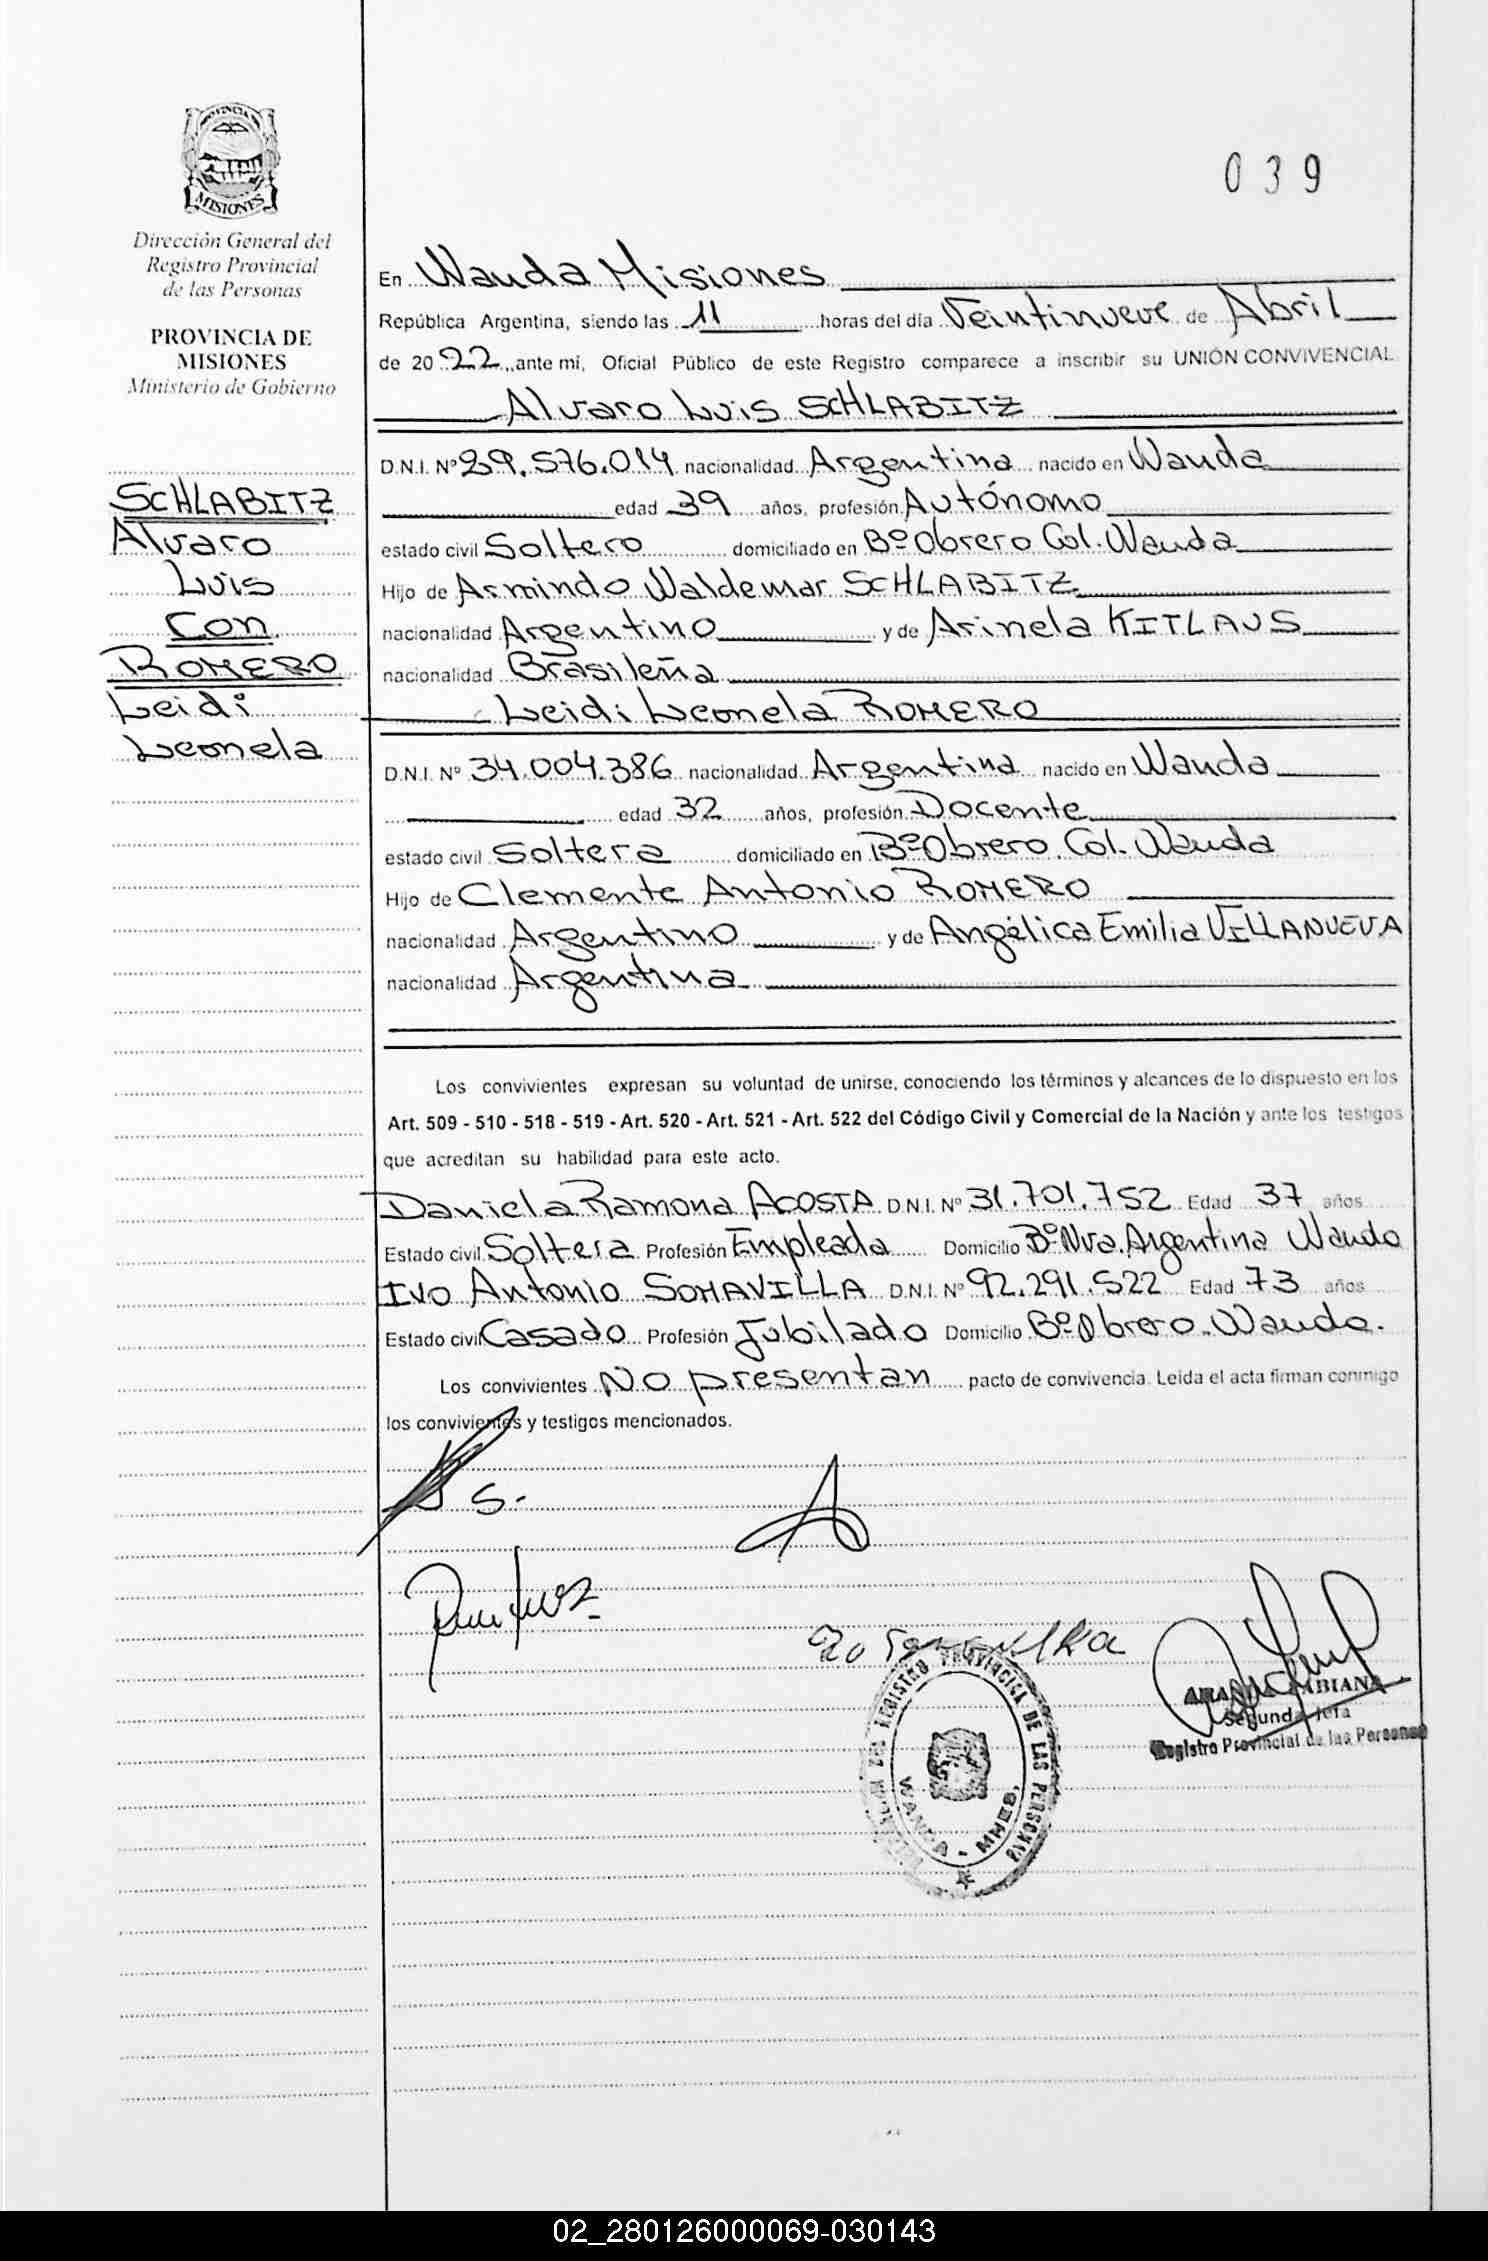 PROVINCIA DE
MISIONES
Dirección General del
Registro Provincial
de las Personas
PROVINCIA DE
MISIONES
Ministerio de Gobierno
SCHLABITZ
Alvaro
Luis
Con
ROMERO
Leidi
Leonela
039
En Wanda Misiones
República Argentina, siendo las 11 horas del día Veintinueve de Abril
de 2022, ante mi, Oficial Público de este Registro comparece a inscribir su UNIÓN CONVIVENCIAL
Alvaro Luis SCHLABITZ
D.N.I. Nº 29.576.014 nacionalidad Argentina nacido en Wanda
edad 39 años, profesión Autónomo
estado civil Soltero domiciliado en Bº Obrero Col. Wanda
Hijo de Armindo Waldemar SCHLABITZ
nacionalidad Argentino y de Arinela KITLAUS
nacionalidad Brasileña
Leidi Leonela ROMERO
D.N.I. Nº 34.004.386 nacionalidad Argentina nacido en Wanda
edad 32 años, profesión Docente
estado civil Soltera domiciliado en Bº Obrero. Col. Wanda
Hijo de Clemente Antonio ROMERO
nacionalidad Argentino y de Angélica Emilia VILLANUEVA
nacionalidad Argentina
Los convivientes expresan su voluntad de unirse, conociendo los términos y alcances de lo dispuesto en los
Art. 509 - 510 - 518 - 519 - Art. 520 - Art. 521 - Art. 522 del Código Civil y Comercial de la Nación y ante los testigos
que acreditan su habilidad para este acto.
Daniela Ramona ACOSTA D.N.I. Nº 31.701.752 Edad 37 años
Estado civil Soltera Profesión Empleada Domicilio Bº Nva. Argentina Wanda
IVO Antonio SOMAVILLA D.N.I. Nº 92.291.522 Edad 73 años
Estado civil Casado Profesión Jubilado Domicilio Bº Obrero. Wanda.
Los convivientes No presentan pacto de convivencia. Leída el acta firman conmigo
los convivientes y testigos mencionados.
S.
REGISTRO PROVINCIAL DE LAS PERSONAS
WANDA - MNES.
Segunda Jefa
Registro Provincial de las Personas
02_280126000069-030143